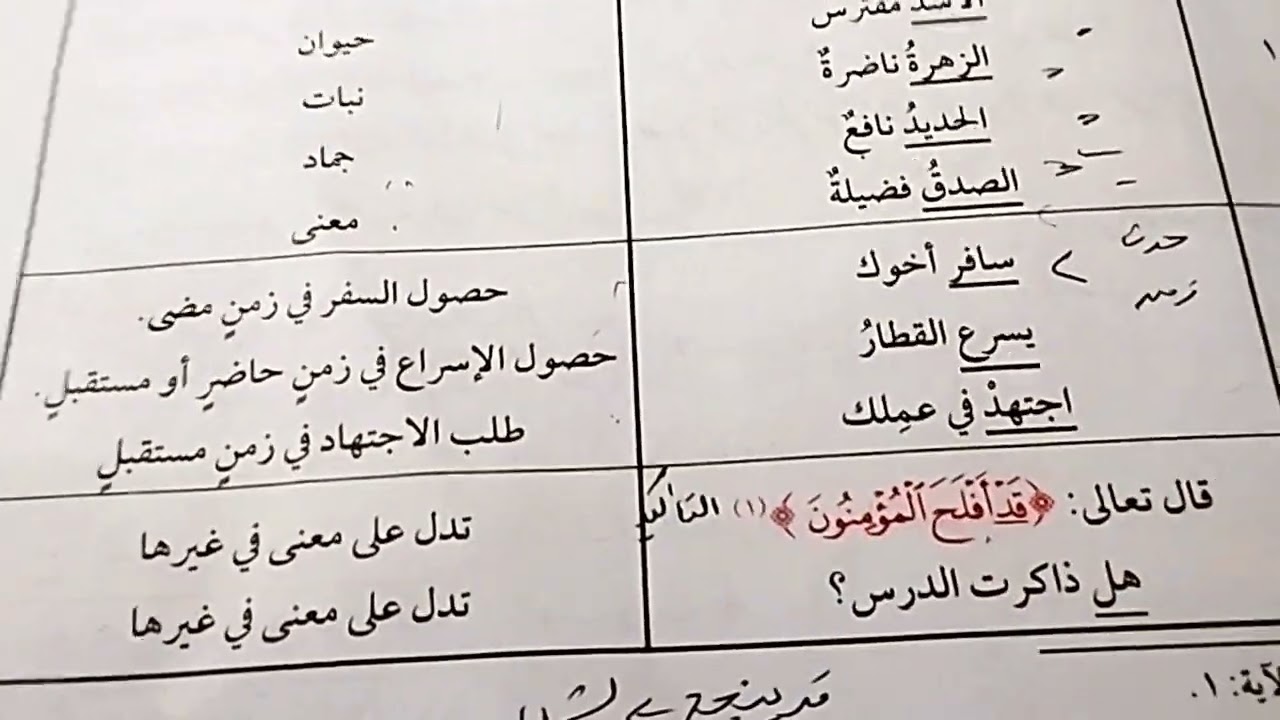 الأسد مفترس حيوان
الزهرةُ ناضرةٌ نبات
الحديدُ نافعٌ جماد
الصدقُ فضيلةٌ معنى
حدث
زمن
سافر أخوك حصول السفر في زمنٍ مضى.
يسرع القطارُ حصول الإسراع في زمنٍ حاضرٍ أو مستقبلٍ.
اجتهدْ في عمِلك طلب الاجتهاد في زمنٍ مستقبلٍ
قال تعالى: ﴿قَدْ أَفْلَحَ ٱلْمُؤْمِنُونَ﴾ (١) تدل على معنى في غيرها
هل ذاكرت الدرس؟ تدل على معنى في غيرها
الآية: ١.